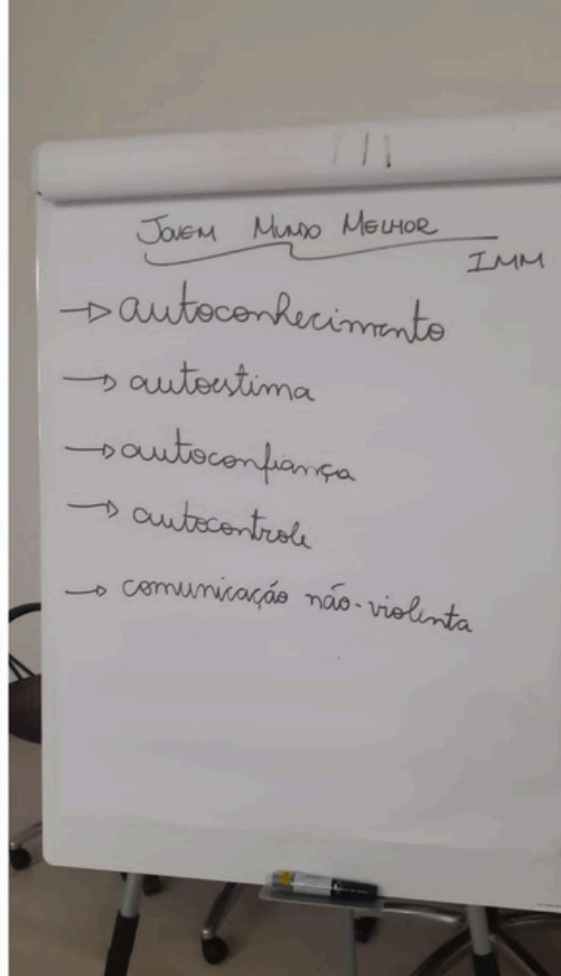 JOVEM MUNDO MELHOR
IMM
→ autoconhecimento
→ autoestima
→ autoconfiança
→ autocontrole
→ comunicação não-violenta